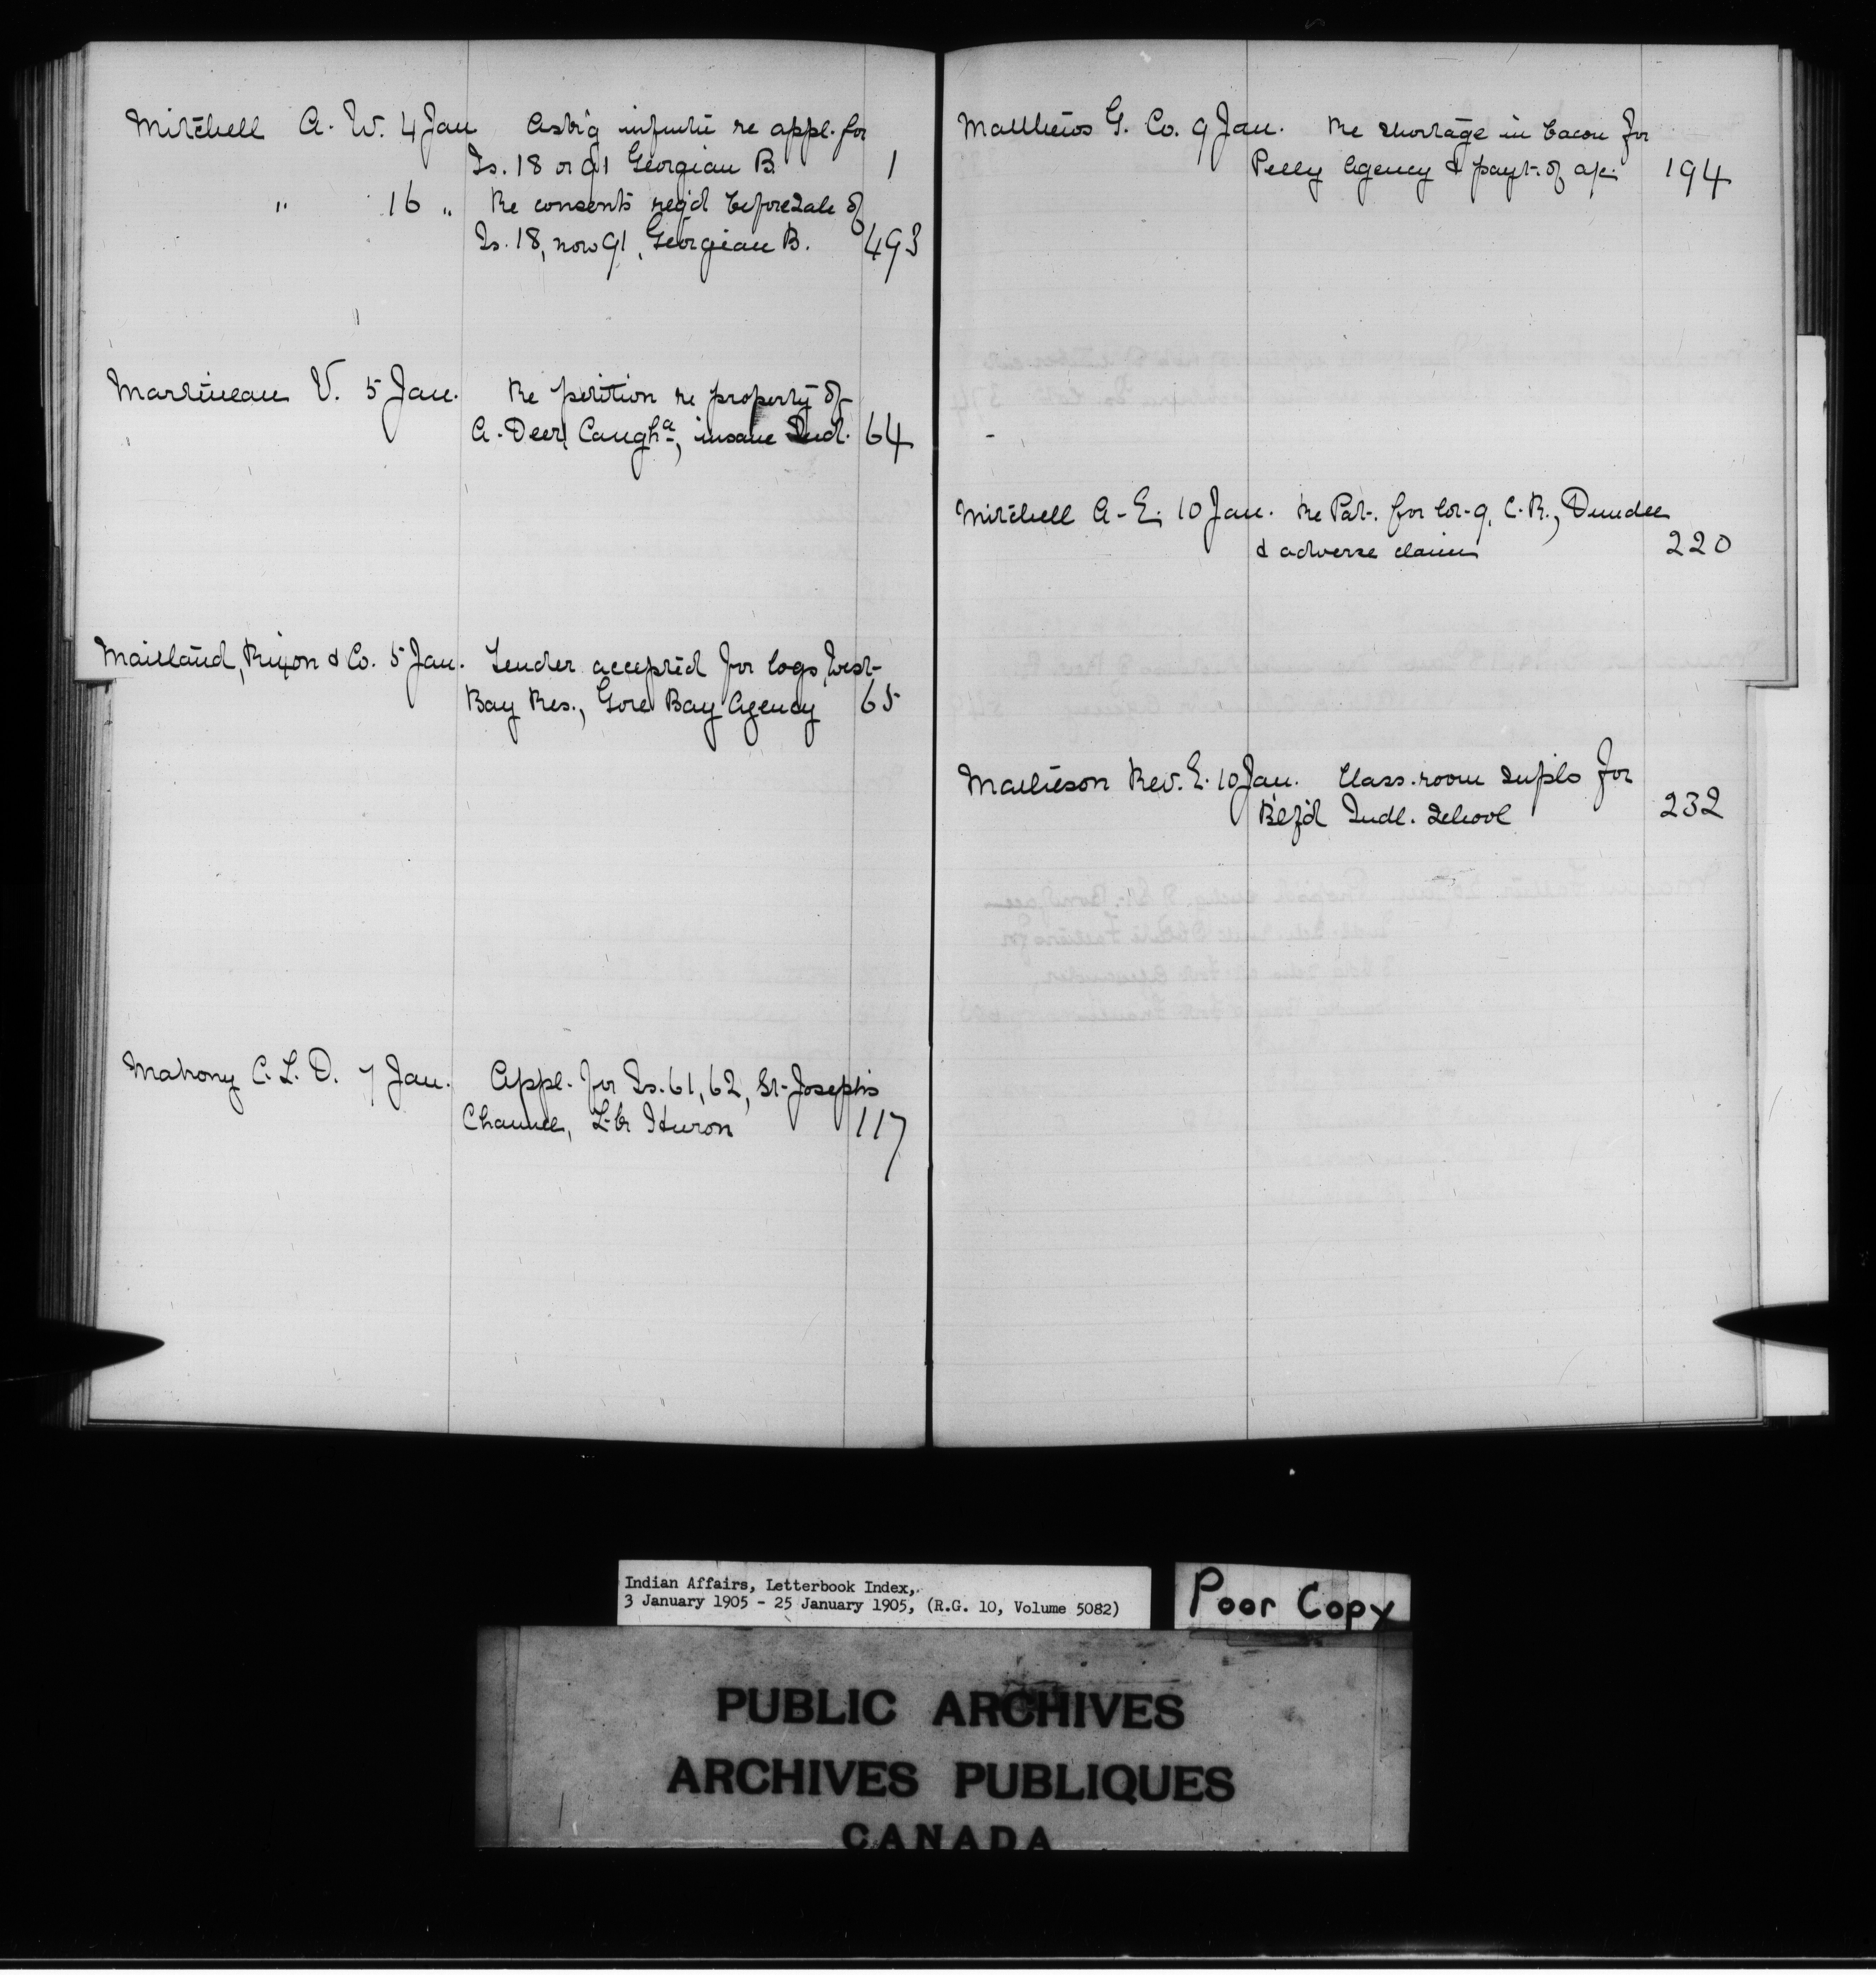 Mitchell A. W. 4 Jan Ask'g informtn re appl. for
Is. 18 or 91 Georgian B. 1
" 16 " Re consents req'd before sale of
Is. 18, now 91, Georgian B. 493
Martineau V. 5 Jan. Re petition re property of
A. Deer, Caugha, insane Ind. 64
Maitland, Rixon & Co. 5 Jan. Tender accepted for logs, West
Bay Res., Gore Bay Agency 65
Mahony C. L. D. 7 Jan. Appl. for Is. 61, 62, St. Joseph's
Channel, L. Huron 117
Matthews G. Co. 9 Jan. Re shortage in bacon for
Pelly Agency & payt. of a/c. 194
Mitchell A. E. 10 Jan. Re Pat. for lot 9, C. R., Dundee
& adverse claim 220
Matheson Rev. E. 10 Jan. Class-room supls for
B'lf'd Indl. School 232
Indian Affairs, Letterbook Index,
3 January 1905 - 25 January 1905, (R.G. 10, Volume 5082)
Poor Copy
PUBLIC ARCHIVES
ARCHIVES PUBLIQUES
CANADA